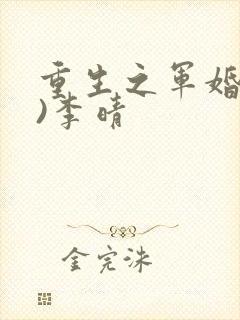 重生之军婚
)李晴
金完洙